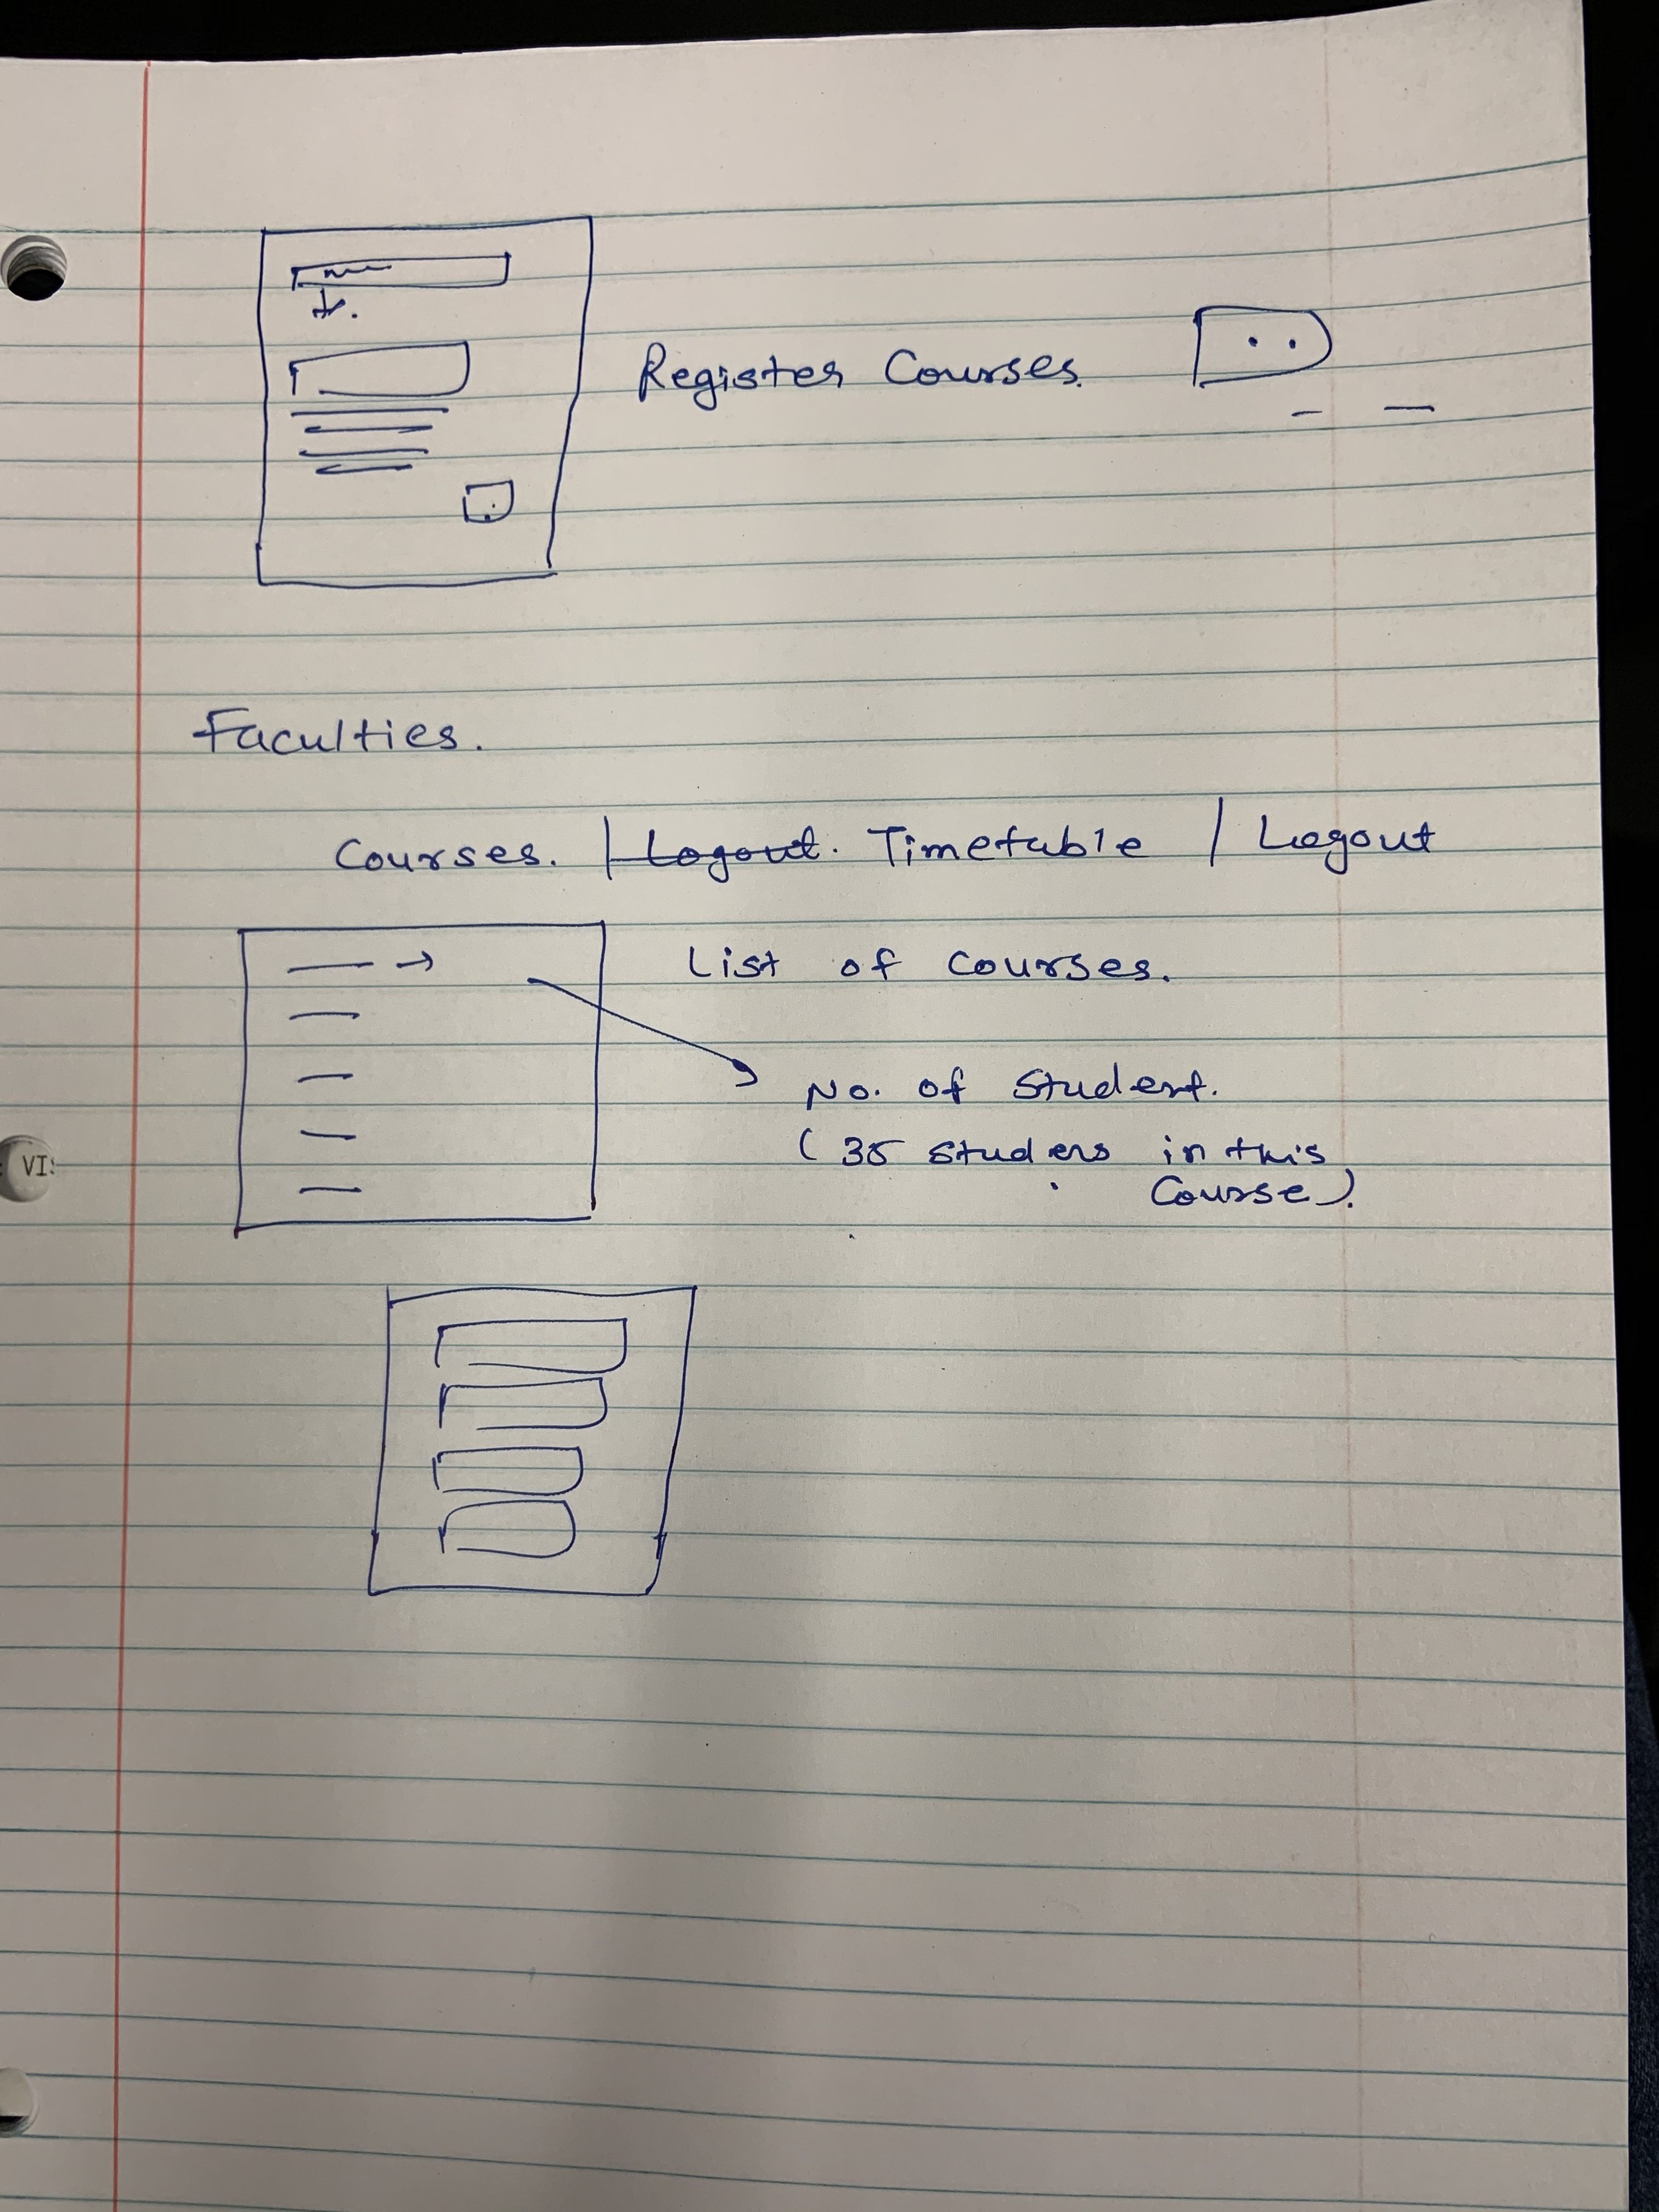 Register Courses.
Faculties.
Courses. | Logout. Timetable | Logout
List of Courses.
No. of Student.
( 35 Studens in this
Course ).
VIS